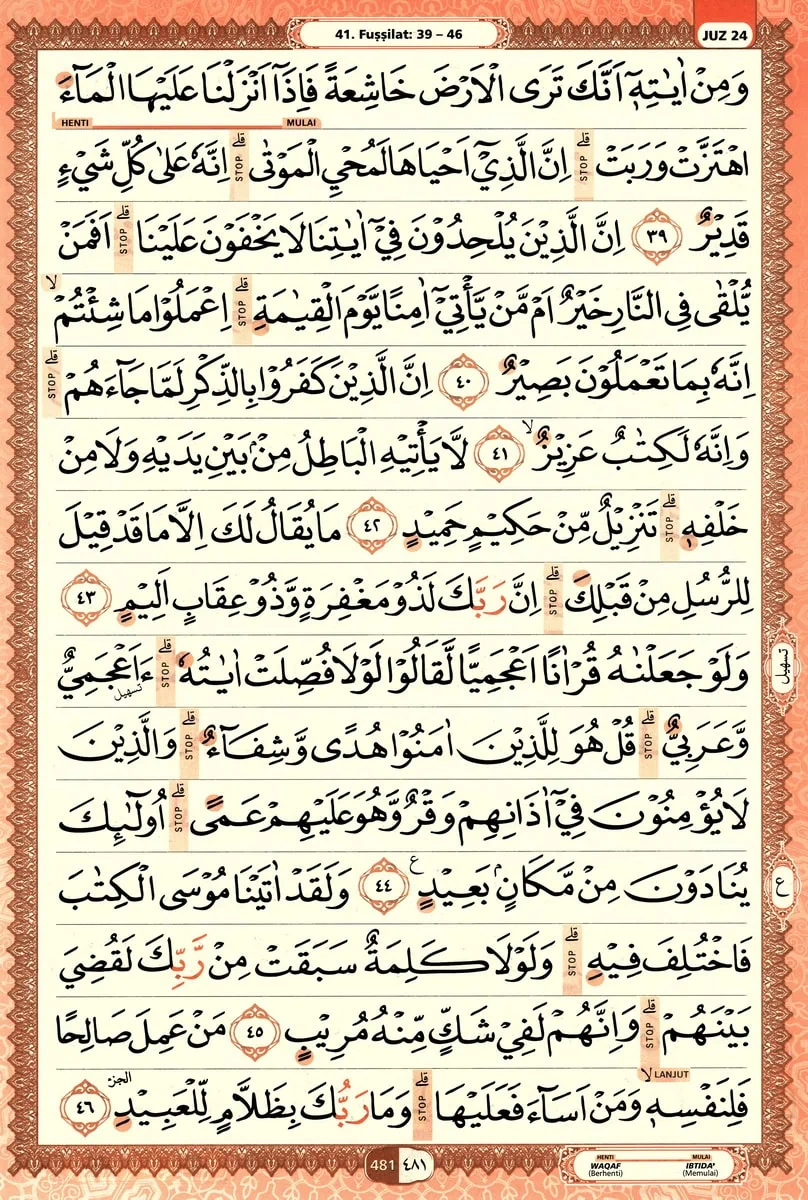 41. Fuṣṣilat: 39 – 46
JUZ 24
وَمِنْ اٰيٰتِهٖٓ اَنَّكَ تَرَى الْاَرْضَ خَاشِعَةً فَاِذَآ اَنْزَلْنَا عَلَيْهَا الْمَاۤءَ
HENTI MULAI
اهْتَزَّتْ وَرَبَتْۗ اِنَّ الَّذِيْٓ اَحْيَاهَا لَمُحْيِ الْمَوْتٰىۗ اِنَّهٗ عَلٰى كُلِّ شَيْءٍ
STOP STOP
قَدِيْرٌ ٣٩ اِنَّ الَّذِيْنَ يُلْحِدُوْنَ فِيْٓ اٰيٰتِنَا لَا يَخْفَوْنَ عَلَيْنَاۗ اَفَمَنْ
STOP
يُّلْقٰى فِى النَّارِ خَيْرٌ اَمْ مَّنْ يَّأْتِيْٓ اٰمِنًا يَّوْمَ الْقِيٰمَةِۗ اِعْمَلُوْا مَا شِئْتُمْۙ
STOP
اِنَّهٗ بِمَا تَعْمَلُوْنَ بَصِيْرٌ ٤٠ اِنَّ الَّذِيْنَ كَفَرُوْا بِالذِّكْرِ لَمَّا جَاۤءَهُمْۗ
STOP
وَاِنَّهٗ لَكِتٰبٌ عَزِيْزٌۙ ٤١ لَّا يَأْتِيْهِ الْبَاطِلُ مِنْۢ بَيْنِ يَدَيْهِ وَلَا مِنْ
خَلْفِهٖۗ تَنْزِيْلٌ مِّنْ حَكِيْمٍ حَمِيْدٍ ٤٢ مَا يُقَالُ لَكَ اِلَّا مَا قَدْ قِيْلَ
STOP
لِلرُّسُلِ مِنْ قَبْلِكَۗ اِنَّ رَبَّكَ لَذُوْ مَغْفِرَةٍ وَّذُوْ عِقَابٍ اَلِيْمٍ ٤٣
STOP
وَلَوْ جَعَلْنٰهُ قُرْاٰنًا اَعْجَمِيًّا لَّقَالُوْا لَوْلَا فُصِّلَتْ اٰيٰتُهٗۗ ءَاَعْجَمِيٌّ
STOP تسهيل
تسهيل
وَّعَرَبِيٌّۗ قُلْ هُوَ لِلَّذِيْنَ اٰمَنُوْا هُدًى وَّشِفَاۤءٌۗ وَالَّذِيْنَ
STOP STOP
لَا يُؤْمِنُوْنَ فِيْٓ اٰذَانِهِمْ وَقْرٌ وَّهُوَ عَلَيْهِمْ عَمًىۗ اُولٰۤىِٕكَ
STOP
يُنَادَوْنَ مِنْ مَّكَانٍۢ بَعِيْدٍ ࣖ ٤٤ وَلَقَدْ اٰتَيْنَا مُوْسَى الْكِتٰبَ
ع
فَاخْتُلِفَ فِيْهِۗ وَلَوْلَا كَلِمَةٌ سَبَقَتْ مِنْ رَّبِّكَ لَقُضِيَ
STOP
بَيْنَهُمْۗ وَاِنَّهُمْ لَفِيْ شَكٍّ مِّنْهُ مُرِيْبٍ ٤٥ مَنْ عَمِلَ صَالِحًا
STOP
LANJUT
فَلِنَفْسِهٖۙ وَمَنْ اَسَاۤءَ فَعَلَيْهَاۗ وَمَا رَبُّكَ بِظَلَّامٍ لِّلْعَبِيْدِ ٤٦
STOP الجزء
481 ٤٨١
HENTI MULAI
WAQAF IBTIDA'
(Berhenti) (Memulai)